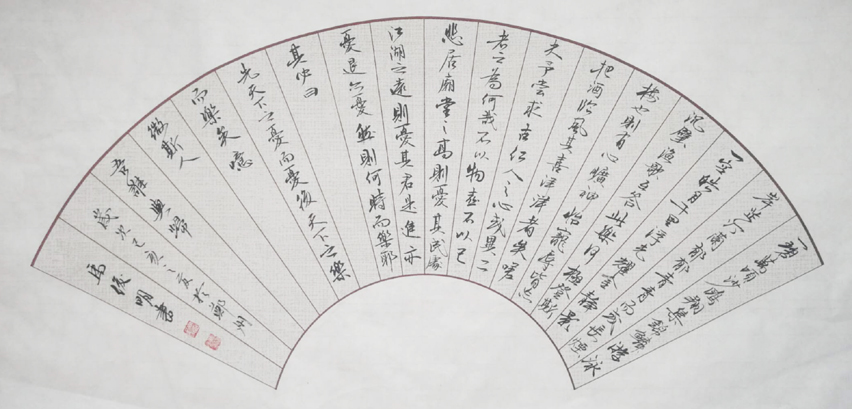 一碧萬頃沙鷗翔集錦鱗游泳
岸芷汀蘭郁郁青青而或長煙
一空皓月千里浮光耀金靜影
沉璧漁歌互答此樂何極登斯
樓也則有心曠神怡寵辱皆忘
把酒臨風其喜洋洋者矣嗟
夫予嘗求古仁人之心或異二
者之為何哉不以物喜不以己
悲居廟堂之高則憂其民處
江湖之遠則憂其君是進亦
憂退亦憂然則何時而樂耶
其必曰
先天下之憂而憂後天下之樂
而樂矣噫
微斯人
吾誰與歸
歲次己亥之夏於鄭州
馬俊明書